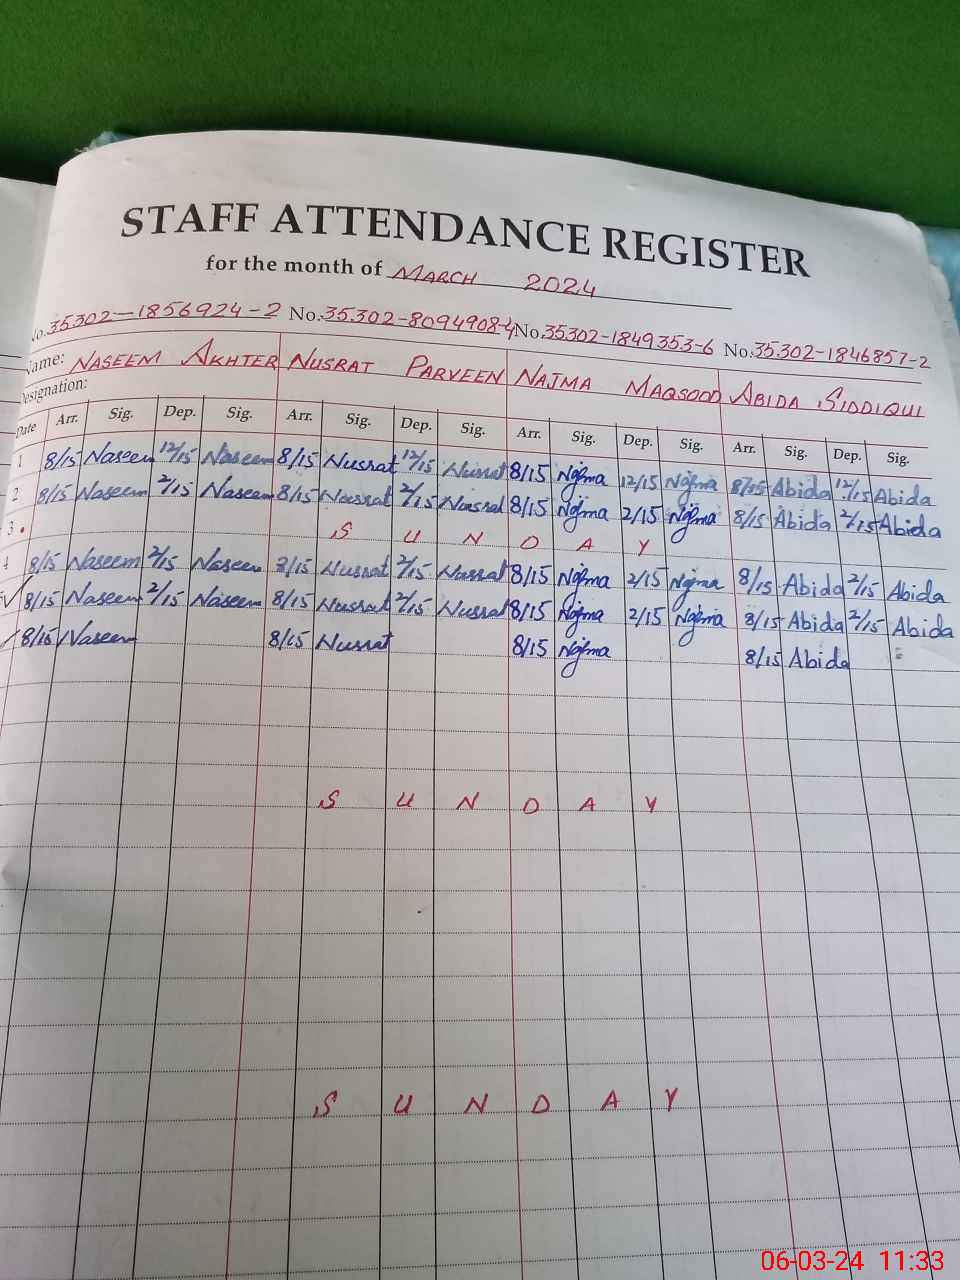 STAFF ATTENDANCE REGISTER
for the month of MARCH 2024
No. 35302-1856924-2 No. 35302-8094908-4 No. 35302-1849353-6 No. 35302-1846857-2
Name: NASEEM AKHTER NUSRAT PARVEEN NAJMA MAQSOOD ABIDA SIDDIQUI
Designation:
Date Arr. Sig. Dep. Sig. Arr. Sig. Dep. Sig. Arr. Sig. Dep. Sig. Arr. Sig. Dep. Sig.
1 8/15 Naseem 12/15 Naseem 8/15 Nusrat 12/15 Nusrat 8/15 Najma 12/15 Najma 8/15 Abida 12/15 Abida
2 8/15 Naseem 2/15 Naseem 8/15 Nusrat 2/15 Nusrat 8/15 Najma 2/15 Najma 8/15 Abida 2/15 Abida
3 S U N D A Y
4 8/15 Naseem 2/15 Naseem 8/15 Nusrat 2/15 Nusrat 8/15 Najma 2/15 Najma 8/15 Abida 2/15 Abida
8/15 Naseem 2/15 Naseem 8/15 Nusrat 2/15 Nusrat 8/15 Najma 2/15 Najma 8/15 Abida 2/15 Abida
8/15 Naseem 8/15 Nusrat 8/15 Najma 8/15 Abida
S U N D A Y
S U N D A Y
06-03-24 11:33